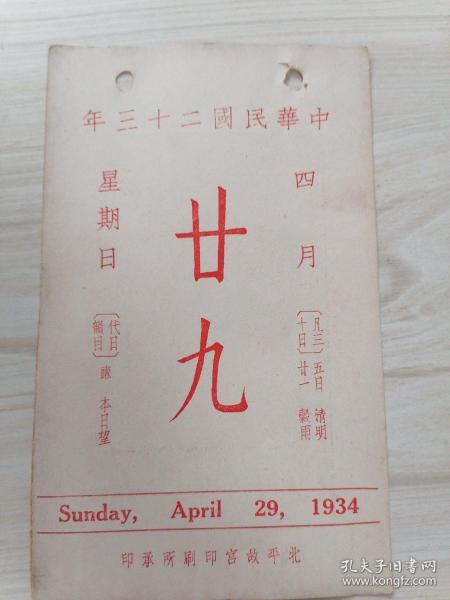 中華民國二十三年
四月
廿九
星期日
〔凡三十日〕
五日 清明
廿一 穀雨
〔代日韻目〕
賺 本日望
Sunday, April 29, 1934
北平故宮印刷所承印
孔夫子旧书网